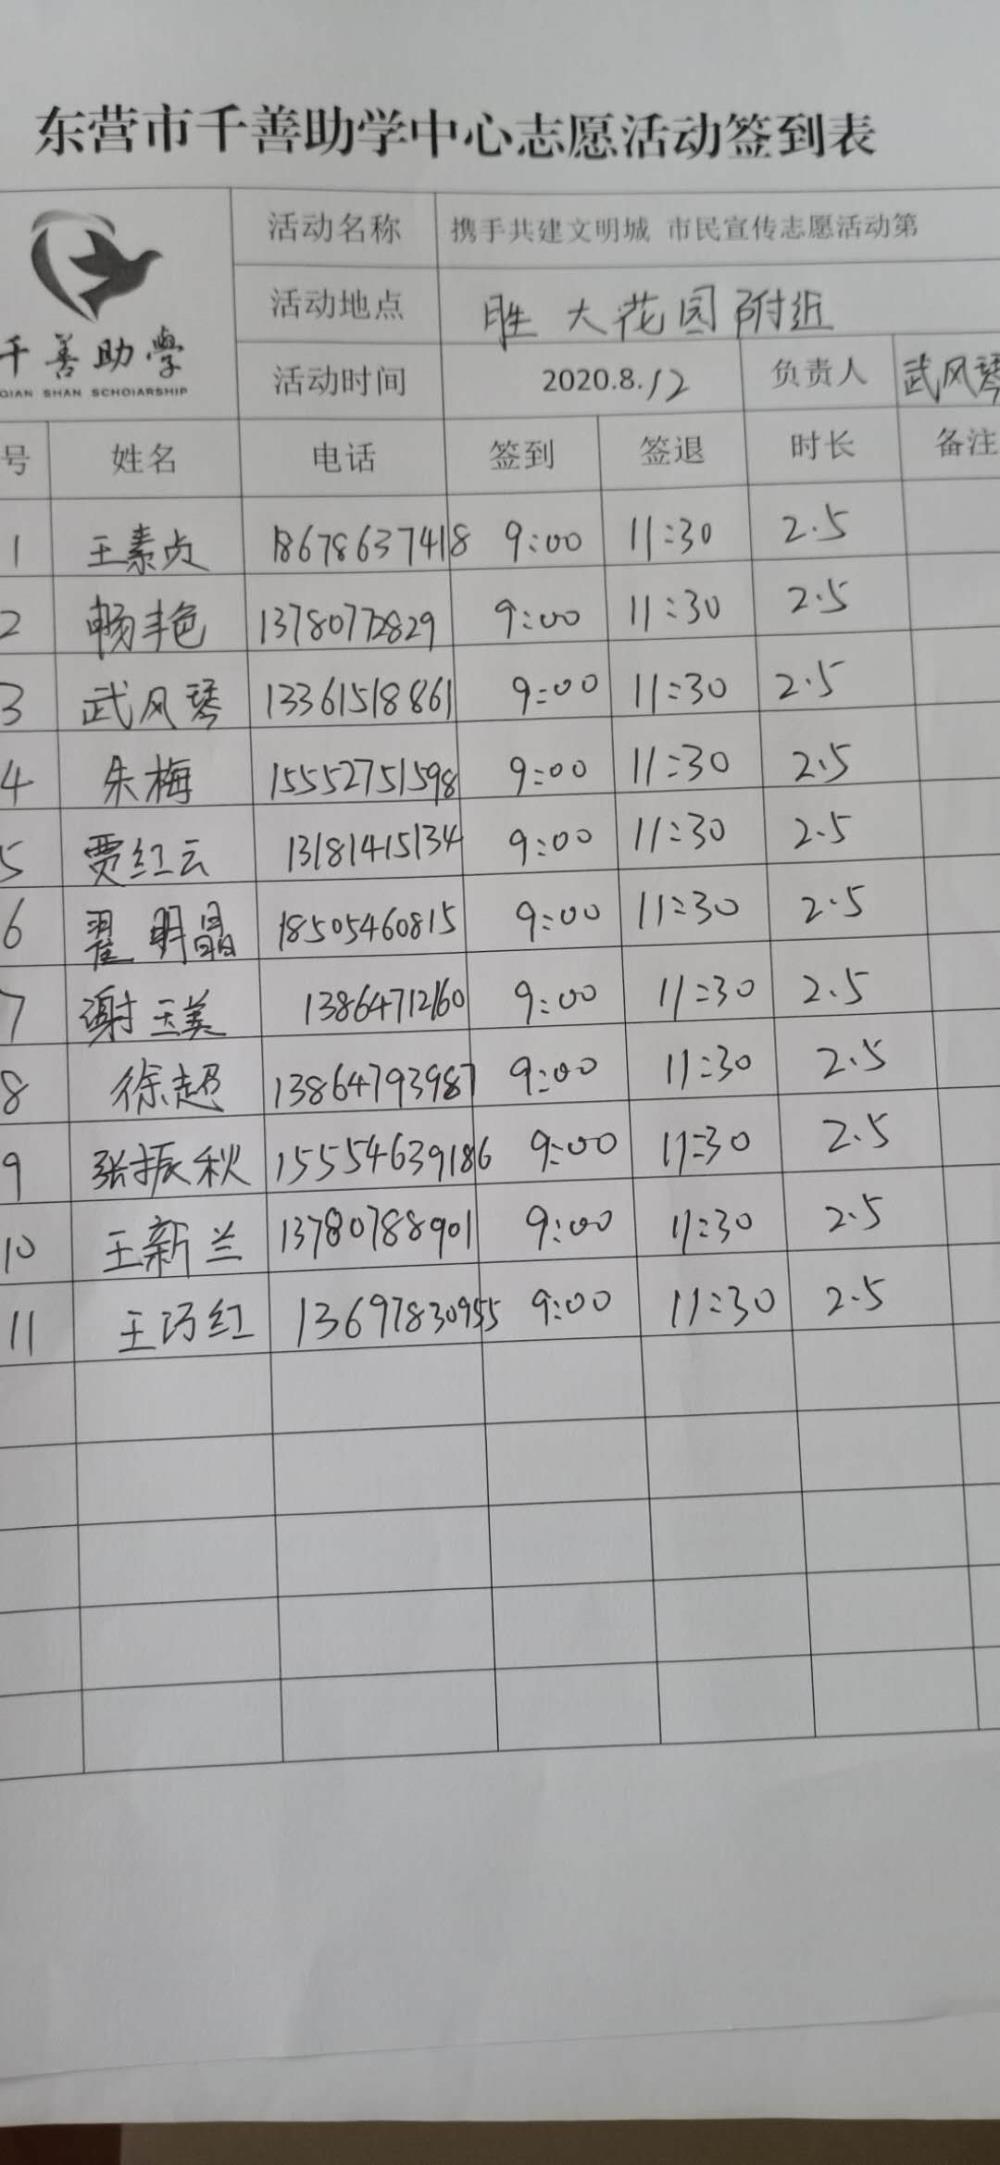 东营市千善助学中心志愿活动签到表
活动名称 携手共建文明城 市民宣传志愿活动第
千善助学
QIAN SHAN SCHOIARSHIP
活动地点 胜大花园附近
活动时间 2020.8.12 负责人 武风琴
号 姓名 电话 签到 签退 时长 备注
1 王素贞 18678637418 9:00 11:30 2.5
2 畅丰艳 13780772829 9:00 11:30 2.5
3 武风琴 13361518861 9:00 11:30 2.5
4 朱梅 15552751598 9:00 11:30 2.5
5 贾红云 13181415134 9:00 11:30 2.5
6 翟明晶 18505460815 9:00 11:30 2.5
7 谢玉美 13864712160 9:00 11:30 2.5
8 徐超 13864793987 9:00 11:30 2.5
9 张振秋 15554639186 9:00 11:30 2.5
10 王新兰 13780788901 9:00 11:30 2.5
11 王巧红 13697830955 9:00 11:30 2.5